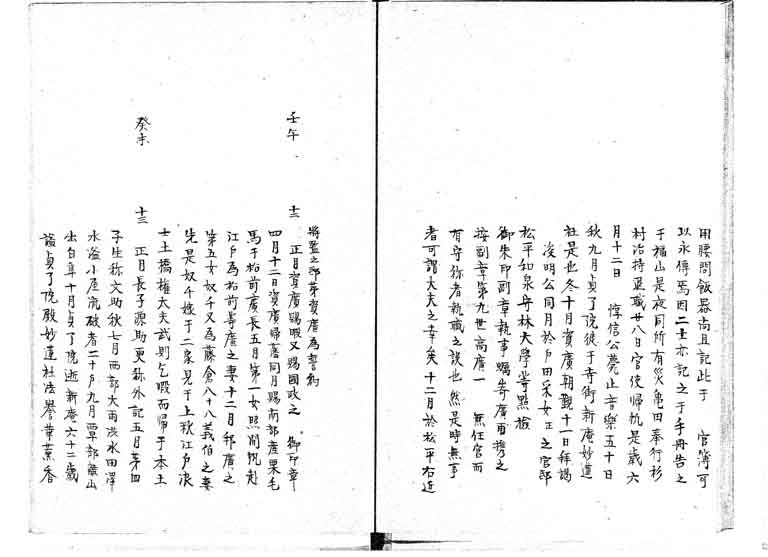 用腰間飯器尚且記此于 官簿可
以永傳焉因二士亦記之于手冊告之
于福山是夜同所有災亀田奉行杉
村治持亟職廿八日官使帰帆是歳六
月十二日 惇信公薨止音樂五十日
秋九月貞了院徒于寺街新庵妙蓮
社是也冬十月資廣朝覲十一日拜謁
浚明公同月於戸田采女正之官邸
松平和泉守林大學等點檢
御朱印副章執事蠣崎廣甫携之
按副章第九世高廣一 無任官而
有守称者執職之誤也然是時無事
者可謂大夫之幸矣十二月於松平右近
將監之邸茅資廣為誓約
壬午 十二 正月資廣賜暇又賜國政之 御印章
四月十二日資廣帰舊同月賜南部産栗毛
馬于松前廣長五月第一女照開帆赴
江戸為松前等廣之妻十二月邦廣之
第五女奴千又為藤倉八十八義伯之妻
先是奴千嫁于二泉見于上秋江戸浪
士土橋權大夫武則乞暇而帰于本土
癸未 十三 正月長子源助更称外記五月茅四
子生称文助秋七月西部大雨淡水田澤
水溢小屋流破者二十戸九月覃部嶽山
出白草十月貞了院逝新庵六十二歳
謚貞了院殿妙蓮社法譽華薫香